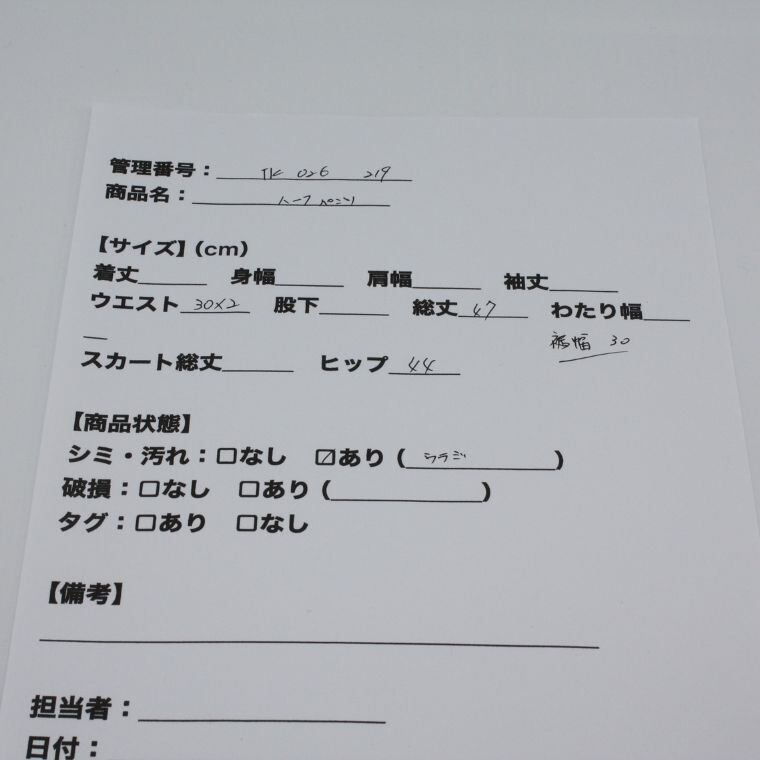 管理番号：TK 026 219
商品名：ハーフパンツ
【サイズ】(cm)
着丈______ 身幅______ 肩幅______ 袖丈______
ウエスト 30×2 股下______ 総丈 47 わたり幅____
裾幅 30
スカート総丈______ ヒップ 44
【商品状態】
シミ・汚れ：☐なし ☑あり (ウラジ)
破損：☐なし ☐あり (____________)
タグ：☐あり ☐なし
【備考】
担当者：
日付：